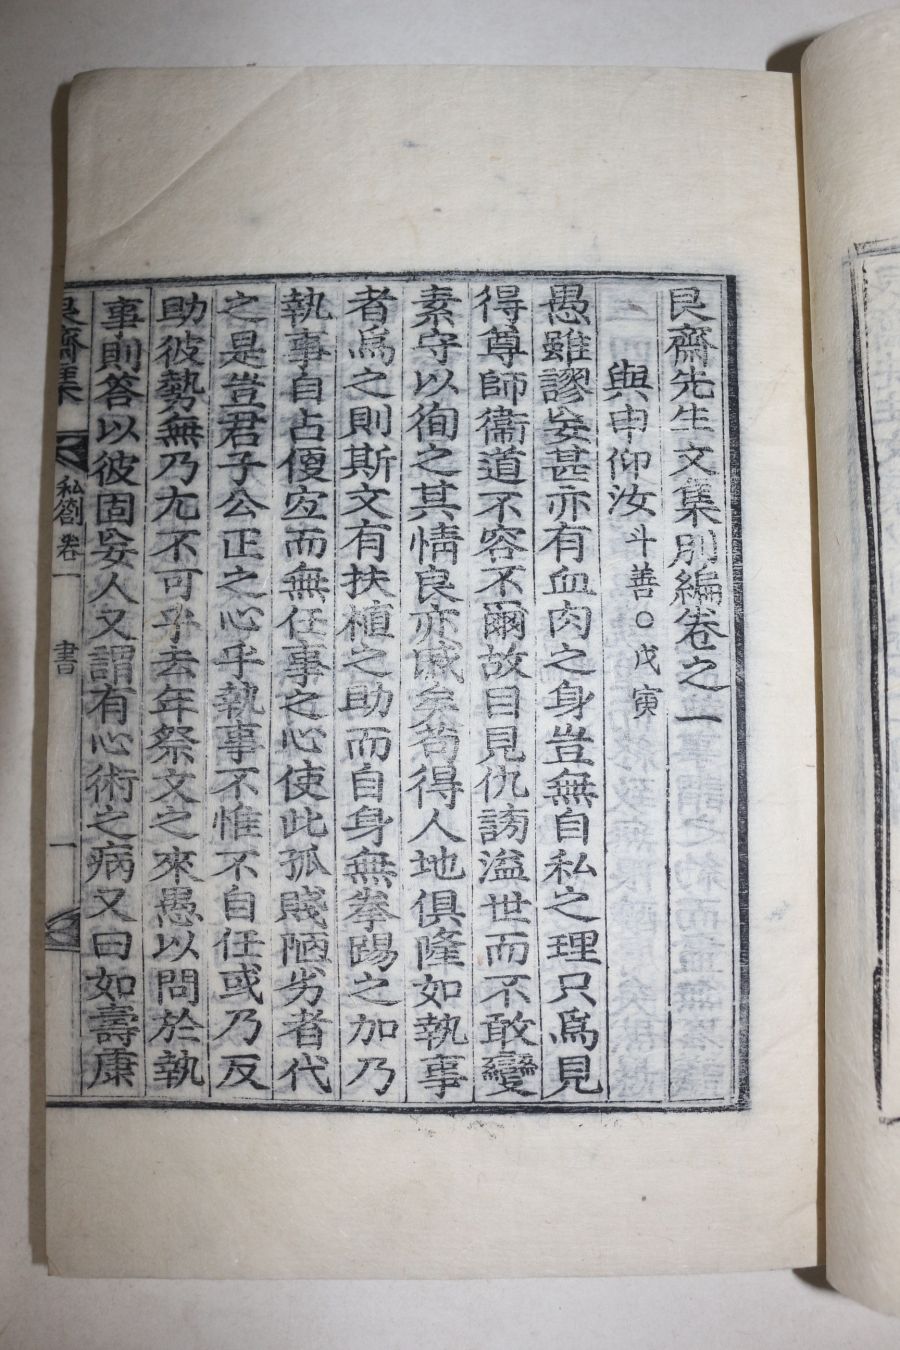 艮齋先生文集別編卷之一
與申仰汝斗善○戊寅
愚雖謬妄甚亦有血肉之身豈無自私之理只爲見
得尊師衞道不容不爾故日見仇謗溢世而不敢變
素守以徇之其情良亦慽矣苟得人地俱隆如執事
者爲之則斯文有扶植之助而自身無拳踢之加乃
執事自占便宜而無任事之心使此孤賤陋劣者代
之是豈君子公正之心乎執事不惟不自任或乃反
助彼勢無乃尤不可乎去年祭文之來愚以問於執
事則答以彼固妄人又謂有心術之病又曰如壽康
艮齋集 私劄卷一 書 一